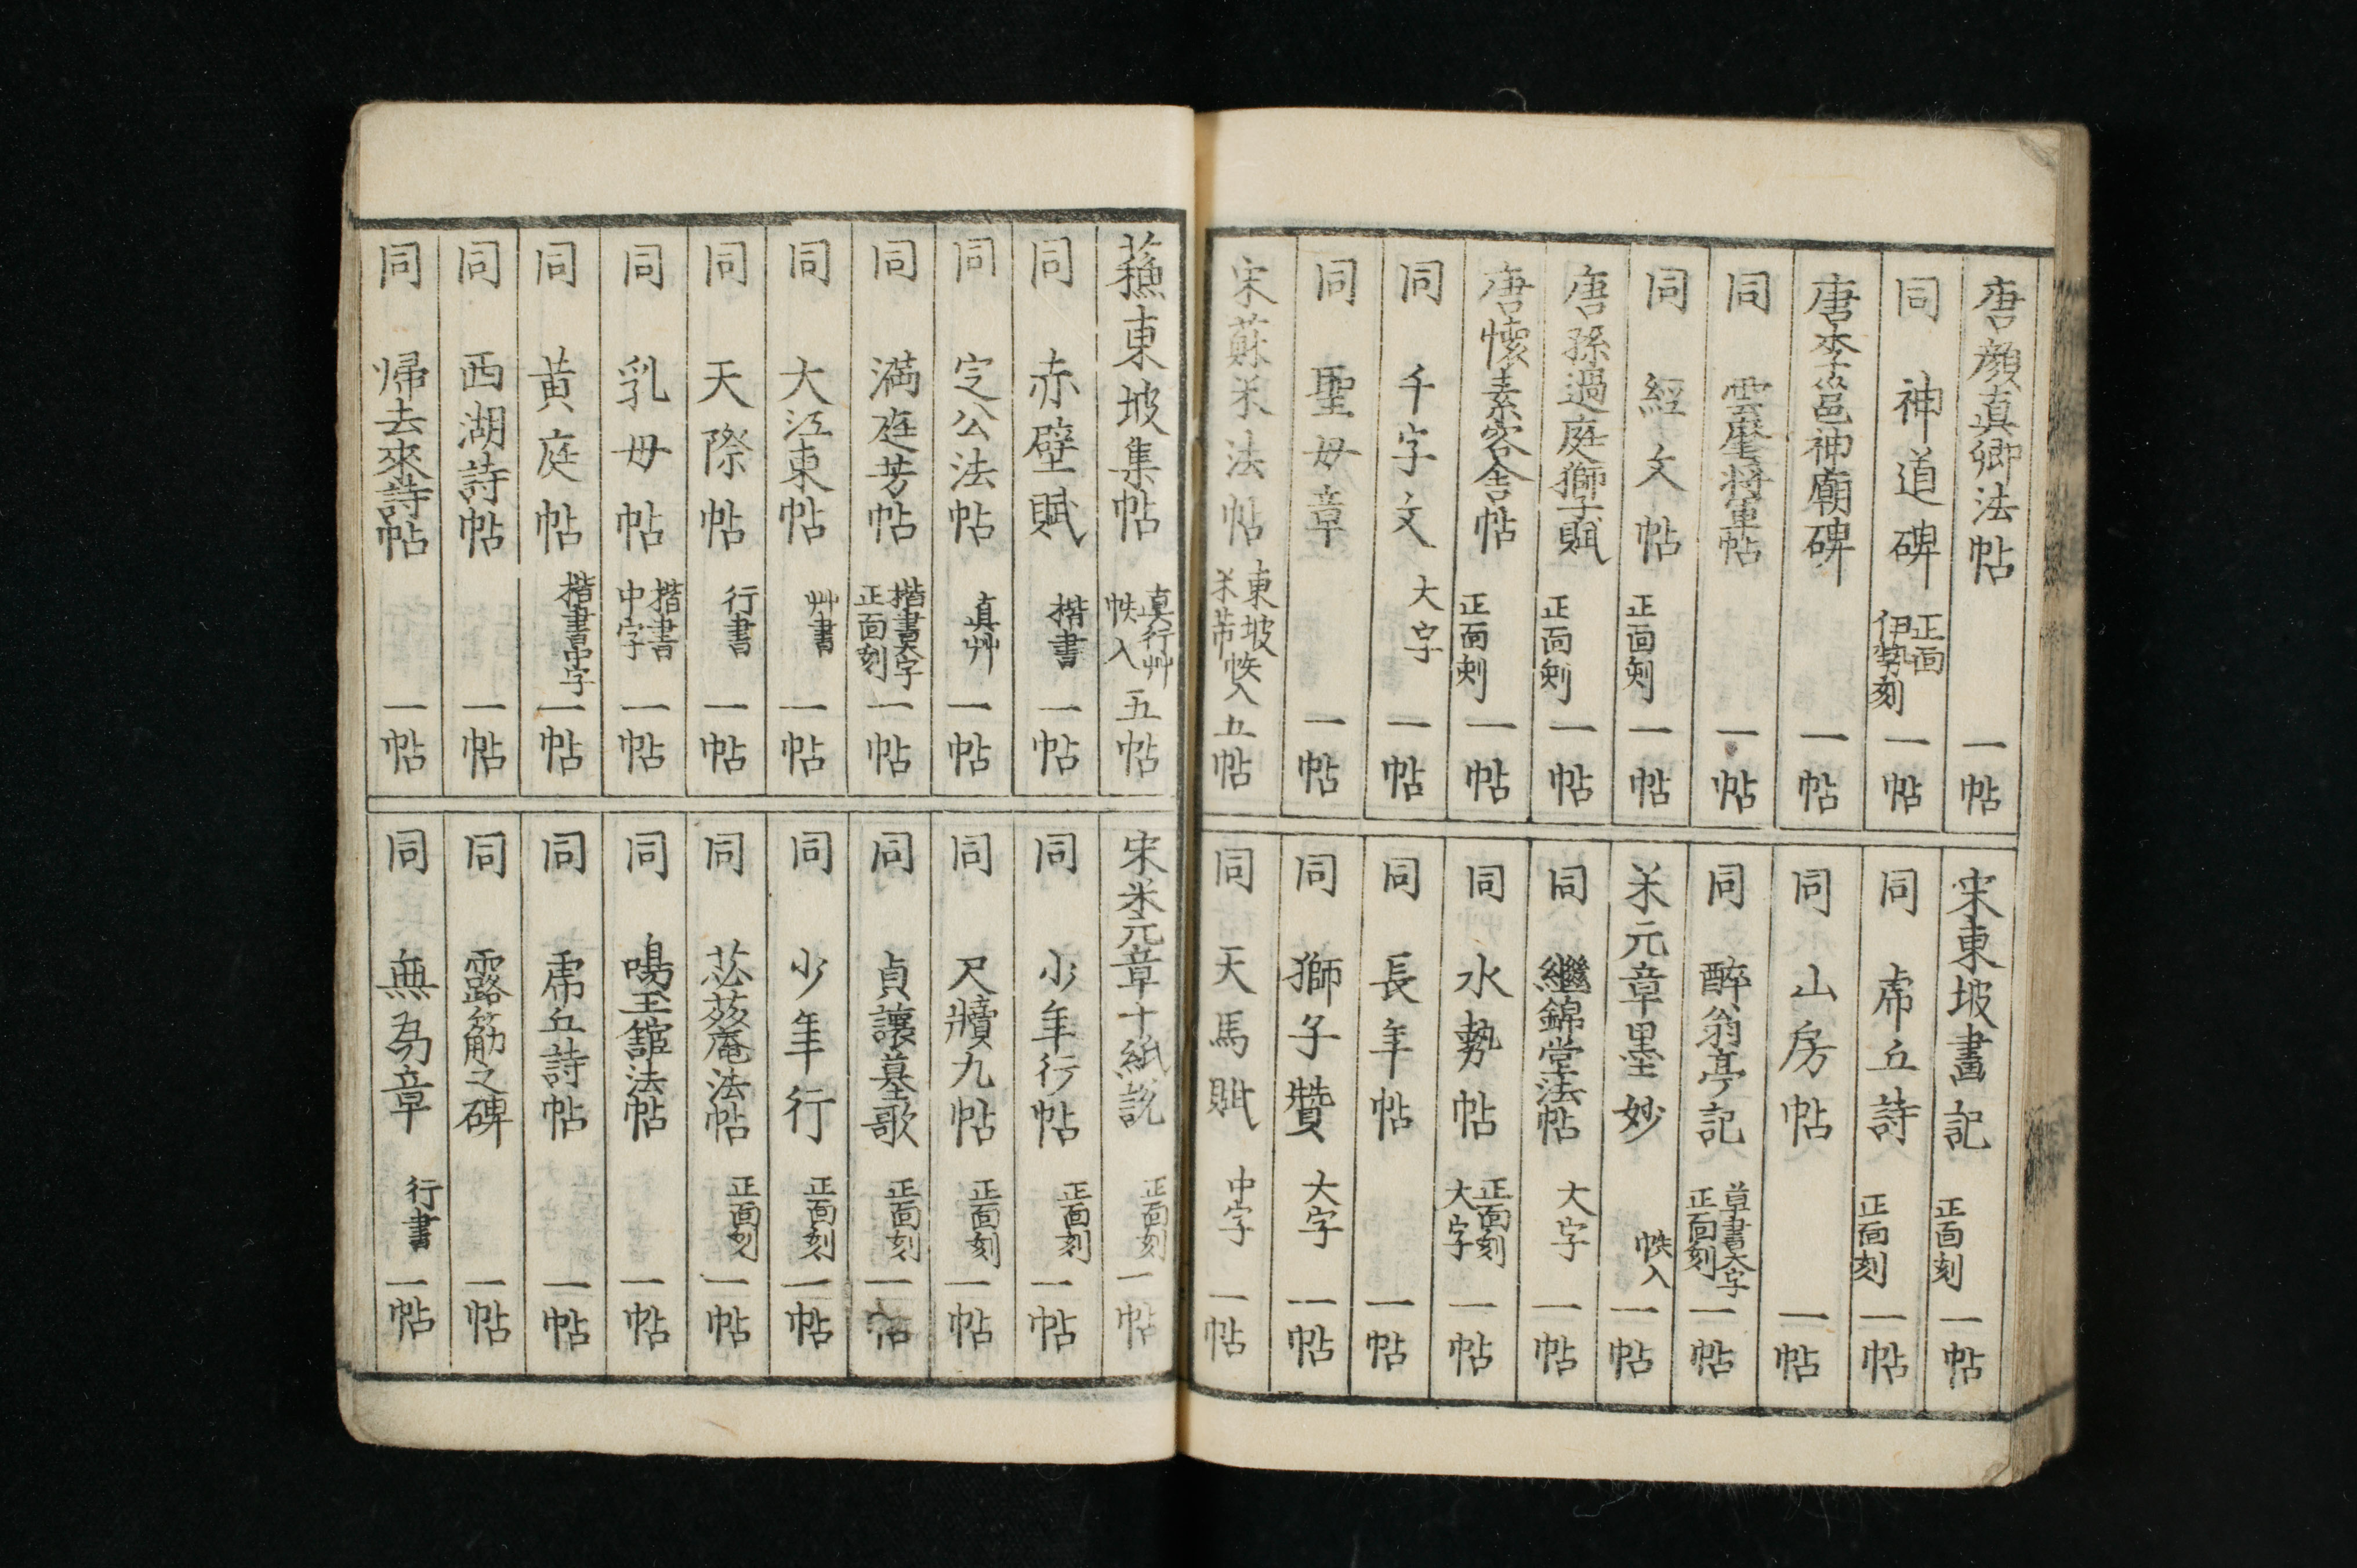 唐顔真卿法帖 一帖
同 神道碑 正面伊勢刻 一帖
唐李邕神廟碑 一帖
同 雲麾将軍帖 一帖
同 經文帖 正面刻 一帖
唐孫過庭獅子賦 正面刻 一帖
唐懐素客舎帖 正面刻 一帖
同 千字文 大字 一帖
同 聖母章 一帖
宋蘇米法帖 東坡米芾帙入 五帖
宋東坡畫記 正面刻 一帖
同 虎丘詩 正面刻 一帖
同 山房帖 一帖
同 醉翁亭記 草書大字正面刻 一帖
米元章墨妙 帙入 一帖
同 繼錦堂法帖 大字 一帖
同 水勢帖 正面刻大字 一帖
同 長年帖 一帖
同 獅子贊 大字 一帖
同 天馬賦 中字 一帖
蘓東坡集帖 真行艸帙入 五帖
同 赤壁賦 楷書 一帖
同 定公法帖 真艸 一帖
同 満庭芳帖 楷書大字正面刻 一帖
同 大江東帖 艸書 一帖
同 天際帖 行書 一帖
同 乳母帖 楷書中字 一帖
同 黄庭帖 楷書中字 一帖
同 西湖詩帖 一帖
同 帰去來詩帖 一帖
宋米元章十紙説 正面刻 一帖
同 小年行帖 正面刻 一帖
同 尺牘九帖 正面刻 一帖
同 貞讓墓歌 正面刻 一帖
同 少年行 正面刻 一帖
同 苾蒭庵法帖 正面刻 一帖
同 鳴玉舘法帖 一帖
同 虎丘詩帖 一帖
同 露筋之碑 一帖
同 無為章 行書 一帖